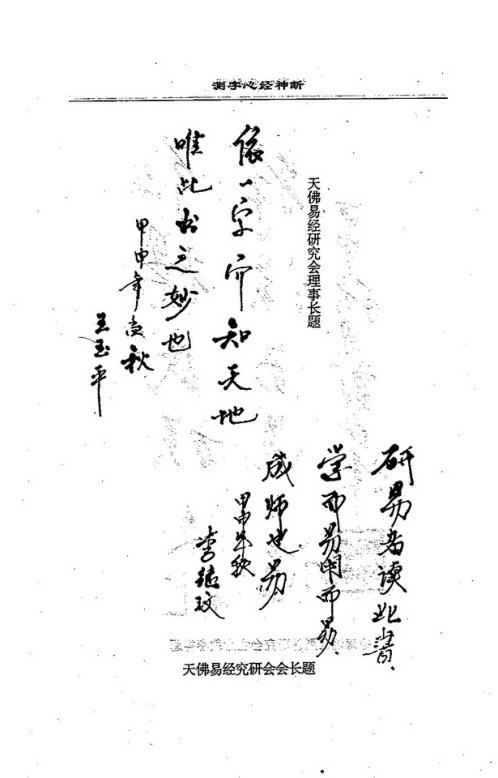 测字心经神断
天佛易经研究会理事长题
依一字而知天地
唯此书之妙也
甲申年高秋
王玉平
研易者读此书、
学而易用而易、
成师也易
甲申年秋
李猛玟
天佛易经究研会会长题